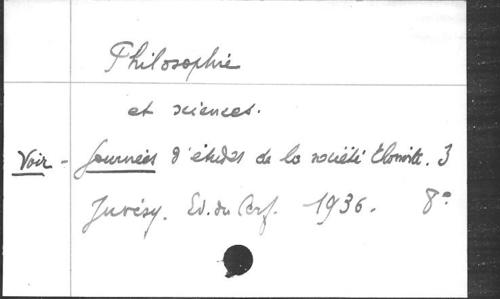 Philosophie
et sciences.
Voir - Journées d'études de la société thomiste. 3
Juvisy. Ed. du Cerf. 1936. 8°